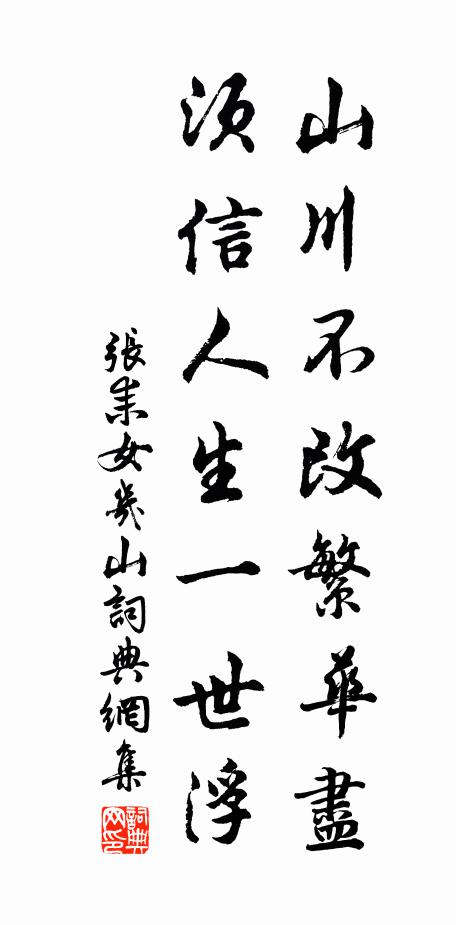 山川不改繁華盡
須信人生一世浮
張耒女几山詞典網集
詞典
网印